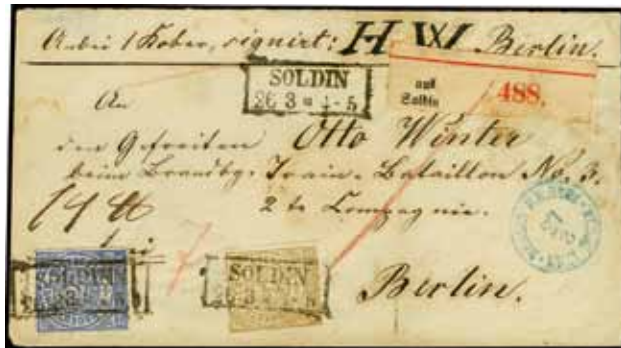 Anbei 1 Kober, signirt: H W Berlin.
SOLDIN
26 3 * 4-5
aus
Soldin
488.
An
den Gefreiten Otto Winter
beim Brandbg. Train-Bataillon No. 3.
2te Compagnie.
frei
7
SOLDIN
SOLDIN
Berlin.